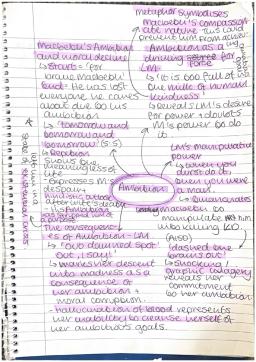 metaphor symbolises
Macbeth's compassion
ate nature this could
prevent him from achieving
Macbeth's Ambition
and moral decline
↳ Starts = 'for
brave Macbeth'
End = He was lost
everyone he cares
about due to his
ambition
↳ 'tomorrow and
tomorrow and
tomorrow' (5:5)
↳ Repetition
shows the
meaninglessness of
life
Expresses M's
despair
nihilistic outlook
after life's death
↳ his ambition
has served
a purpose
Ambition as a
driving force for
LM:
↳ 'it is too full of
the milk of human
kindness'
↳ reveals LM's desire
for power + doubts
M's power to do
it
LM's manipulative
power
↳ 'when you
durst do it,
then you were
a man.'
↳ Emasculates
Macbeth to
manipulate him
into killing KD
Ambition
state of existential crisis
The consequenc
es of Ambition - LM
↳ 'out damned spot
out, I say!'
↳ marks her descent
into madness as a
consequence of
her ambition +
moral corruption.
- hallucination of blood represents
her inability to cleanse herself of
her ambitious goals.
(A1S7)
'dashed the
brains out'
↳ shocking/
graphic imagery
reveals her
commitment
to her ambition.